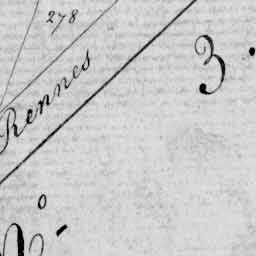 278
Rennes
3.